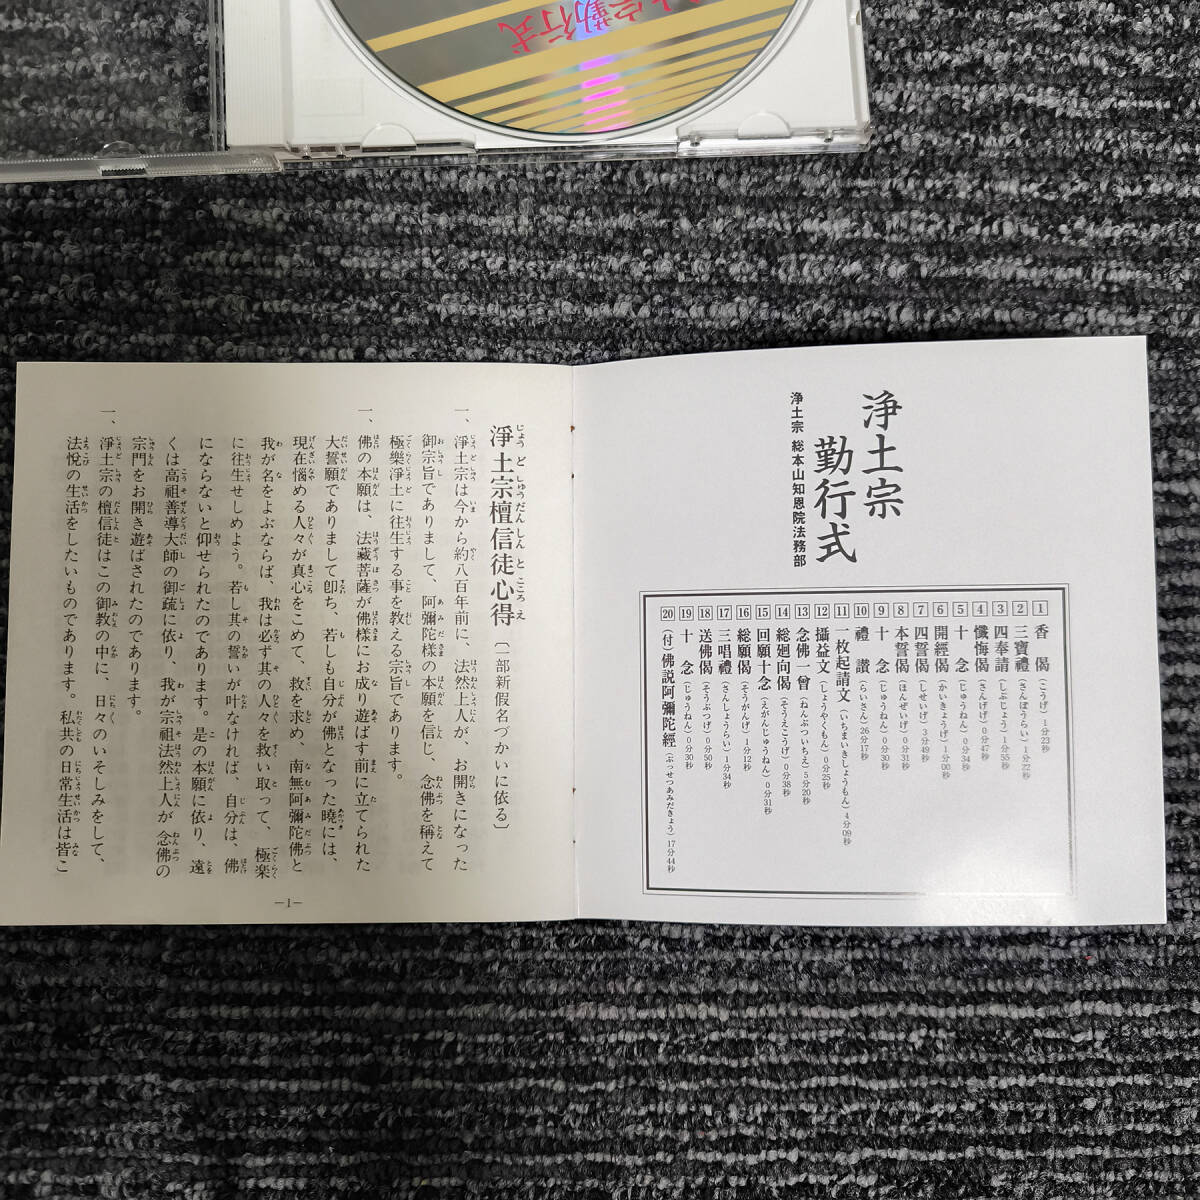 宗勤行式
浄土宗
勤行式
浄土宗 総本山知恩院法務部
1 香偈（こうげ）1分23秒
2 三寶禮（さんぼうらい）1分22秒
3 四奉請（しぶじょう）1分55秒
4 懺悔偈（さんげげ）0分47秒
5 十念（じゅうねん）0分34秒
6 開經偈（かいきょうげ）1分00秒
7 四誓偈（しせいげ）3分49秒
8 本誓偈（ほんぜいげ）0分31秒
9 十念（じゅうねん）0分30秒
10 禮讃（らいさん）26分17秒
11 一枚起請文（いちまいきしょうもん）4分09秒
12 攝益文（しょうやくもん）0分25秒
13 念佛一會（ねんぶついちえ）5分20秒
14 総廻向偈（そうえこうげ）0分38秒
15 回願十念（えがんじゅうねん）0分31秒
16 総願偈（そうがんげ）1分12秒
17 三唱禮（さんしょうらい）1分34秒
18 送佛偈（そうぶつげ）0分50秒
19 十念（じゅうねん）0分30秒
20 （付）佛説阿彌陀經（ぶっせつあみだきょう）17分44秒
淨土宗檀信徒心得〔一部新假名づかいに依る〕
一、淨土宗は今から約八百年前に、法然上人が、お開きになった
御宗旨でありまして、阿彌陀様の本願を信じ、念佛を稱えて
極樂淨土に往生する事を教える宗旨であります。
一、佛の本願は、法藏菩薩が佛様にお成り遊ばす前に立てられた
大誓願でありまして卽ち、若しも自分が佛となった曉には、
現在惱める人々が真心をこめて、救を求め、南無阿彌陀佛と
我が名をよぶならば、我は必ず其の人々を救い取って、極楽
に往生せしめよう。若し其の誓いが叶なければ、自分は、佛
にならないと仰せられたのであります。是の本願に依り、遠
くは高祖善導大師の御疏に依り、我が宗祖法然上人が念佛の
宗門をお開き遊ばされたのであります。
一、淨土宗の檀信徒はこの御教の中に、日々のいそしみをして、
法悅の生活をしたいものであります。私共の日常生活は皆こ
―1―